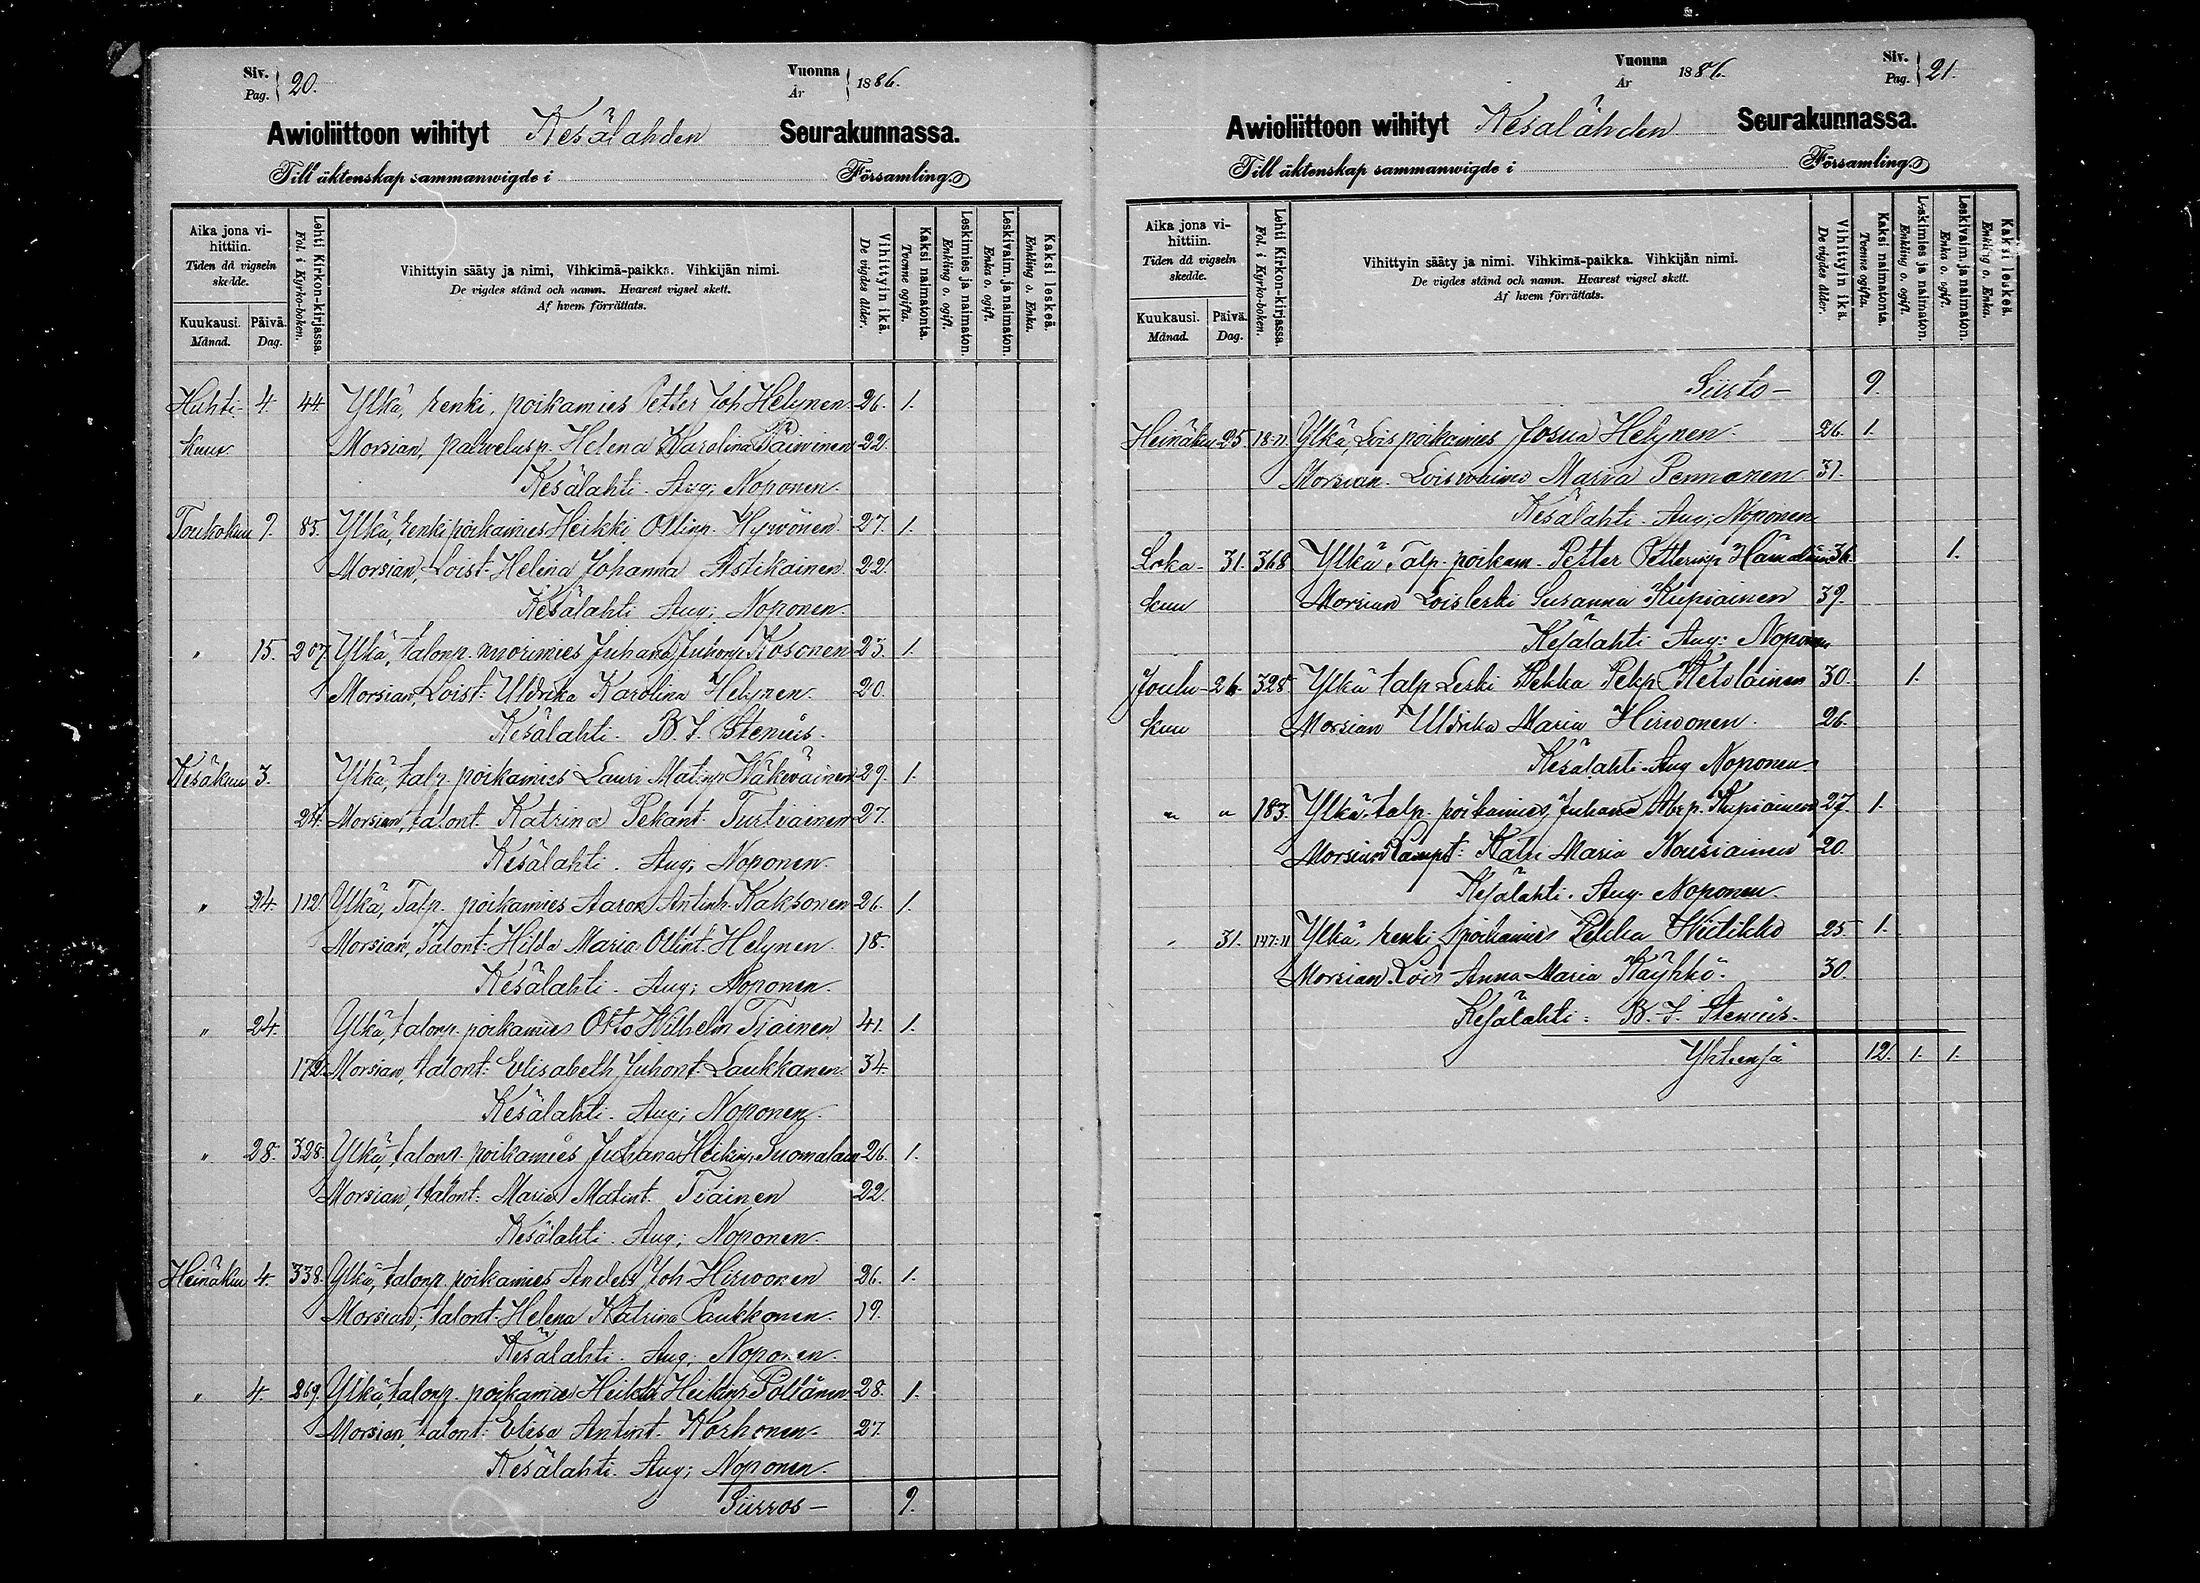 Siv. Pag. 20. Vuonna År 1886.
Awioliittoon wihityt Kesälahden Seurakunnassa.
Till äktenskap sammanwigde i Församling.
Aika jona vihittiin. Tiden då vigseln skedde.
Kuukausi. Månad. Päivä. Dag.
Lehti Kirkon-kirjassa. Fol. i Kyrko-boken.
Vihittyin sääty ja nimi, Vihkimä-paikka. Vihkijän nimi.
De vigdes stånd och namn. Hvarest vigsel skett.
Af hvem förrättats.
Vihittyin ikä. De vigdes ålder.
Kaksi naimatonta. Tvenne ogifta.
Leskimies ja naimaton. Enkling o. ogift.
Leskivaim. ja naimaton. Enka o. ogift.
Kaksi leskeä. Enkling o. Enka.
Huhti- 4. 44 Ylkä, renki, poikamies Petter Joh Helynen 26. 1.
kuu Morsian, palwelusp. Helena Karolina Päiwinen 22.
Kesälahti. Aug; Noponen.
Toukokuu 9. 85. Ylkä, renki poikamies Heikki Ollinp. Hywönen 27. 1.
Morsian, Loist. Helena Johanna Astikainen 22.
Kesälahti Aug; Noponen.
" 15. 207. Ylkä, talonp. nuorimies Juhana Juhonp Kosonen 23. 1.
Morsian, Loist: Uldrika Karolina Helynen 20.
Kesälahti. B. J. Stenius.
Kesäkuu 3. Ylkä, talp. poikamies Lauri Matinp Häkwäinen 29. 1.
24. Morsian, talont. Katrina Pekant. Turtiainen 27.
Kesälahti. Aug; Noponen.
" 24. 112. Ylkä, Talp. poikamies Aaron Antinp. Kaksonen 26. 1.
Morsian, Talont: Hilda Maria Ollint. Helynen 18.
Kesälahti. Aug; Noponen.
" 24. Ylkä, talonp. poikamies Otto Wilhelm Tiainen 41. 1.
172. Morsian, talont: Elisabeth Juhont. Laukkanen 34.
Kesälahti. Aug; Noponen.
" 28. 328. Ylkä, talonp. poikamies Juhana Heikinp Suomalain 26. 1.
Morsian, talont: Maria Matint. Tiainen 22.
Kesälahti. Aug; Noponen.
Heinäkuu 4. 338. Ylkä, talonp. poikamies Anders Joh Hirwonen 26. 1.
Morsian, talont. Helena Katrina Paukkonen. 19.
Kesälahti. Aug; Noponen.
" 4. 269. Ylkä, talonp. poikamies Heikki Heikinp Poltänen 28. 1.
Morsian, talont: Elisa Antint. Korhonen. 27.
Kesälahti. Aug; Noponen.
Siirros – 9.
Vuonna År 1886. Siv. Pag. 21.
Awioliittoon wihityt Kesälahden Seurakunnassa.
Till äktenskap sammanwigde i Församling.
Aika jona vihittiin. Tiden då vigseln skedde.
Kuukausi. Månad. Päivä. Dag.
Lehti Kirkon-kirjassa. Fol. i Kyrko-boken.
Vihittyin sääty ja nimi. Vihkimä-paikka. Vihkijän nimi.
De vigdes stånd och namn. Hvarest vigsel skett.
Af hvem förrättats.
Vihittyin ikä. De vigdes ålder.
Kaksi naimatonta. Tvenne ogifta.
Leskimies ja naimaton. Enkling o. ogift.
Leskivaim. ja naimaton. Enka o. ogift.
Kaksi leskeä. Enkling o. Enka.
Siirto – 9.
Heinäkuu 25 Ylkä, Lois poikamies Josua Helynen. 26. 1.
Morsian. Loiswaimo Maria Pennanen 31.
Kesälahti. Aug; Noponen
Loka- 31. 368 Ylkä, Talp. poikam. Petter Petterinp Hämäläin 36. 1.
kuu Morsian Loisleski Susanna Kupiainen 39.
Kesälahti Aug; Noponen
Joulu- 26. 328. Ylkä talp Leski Pekka Pekp Ketolainen 30. 1.
kuu Morsian Uldrika Maria Hirwonen. 26.
Kesälahti. Aug Noponen.
" " 183. Ylkä, talp. poikamies Juhana Abrp. Kupiainen 27. 1.
Morsian Lampt: Katri Maria Nousiainen 20.
Kesälahti. Aug. Noponen.
" 31. 147:11 Ylkä, renki poikamies Pekka Hiitikko 25 1.
Morsian. Lois Anna Maria Käyhkö. 30.
Kesälahti. B. J. Stenius.
Yhteensä 12. 1. 1.